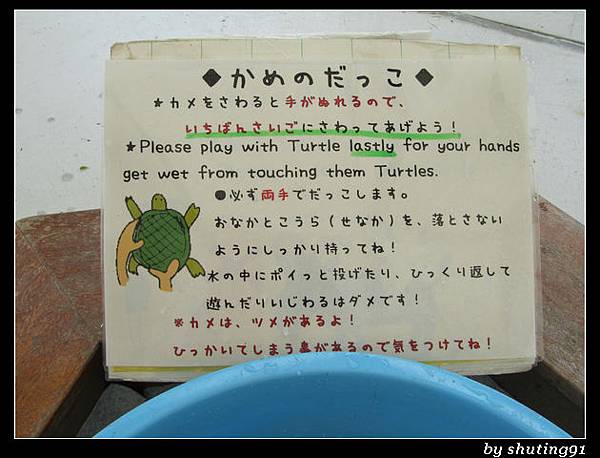 ◆かめのだっこ◆
★カメをさわると手がぬれるので、
いちばんさいごにさわってあげよう！
★Please play with Turtle lastly for your hands
get wet from touching them Turtles.
●必ず両手でだっこします。
おなかとこうら（せなか）を、落とさない
ようにしっかり持ってね！
水の中にポイっと投げたり、ひっくり返して
遊んだりいじわるはダメです！
※カメは、ツメがあるよ！
ひっかいてしまう事があるので気をつけてね！
by shuting91